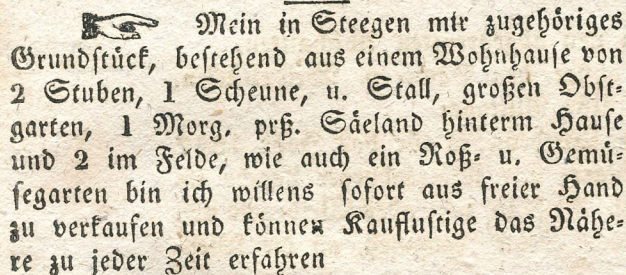 Mein in Steegen mir zugehöriges
Grundstück, bestehend aus einem Wohnhause von
2 Stuben, 1 Scheune, u. Stall, großen Obst-
garten, 1 Morg. prß. Säeland hinterm Hause
und 2 im Felde, wie auch ein Roß- u. Gemü-
segarten bin ich willens sofort aus freier Hand
zu verkaufen und können Kauflustige das Nähe-
re zu jeder Zeit erfahren